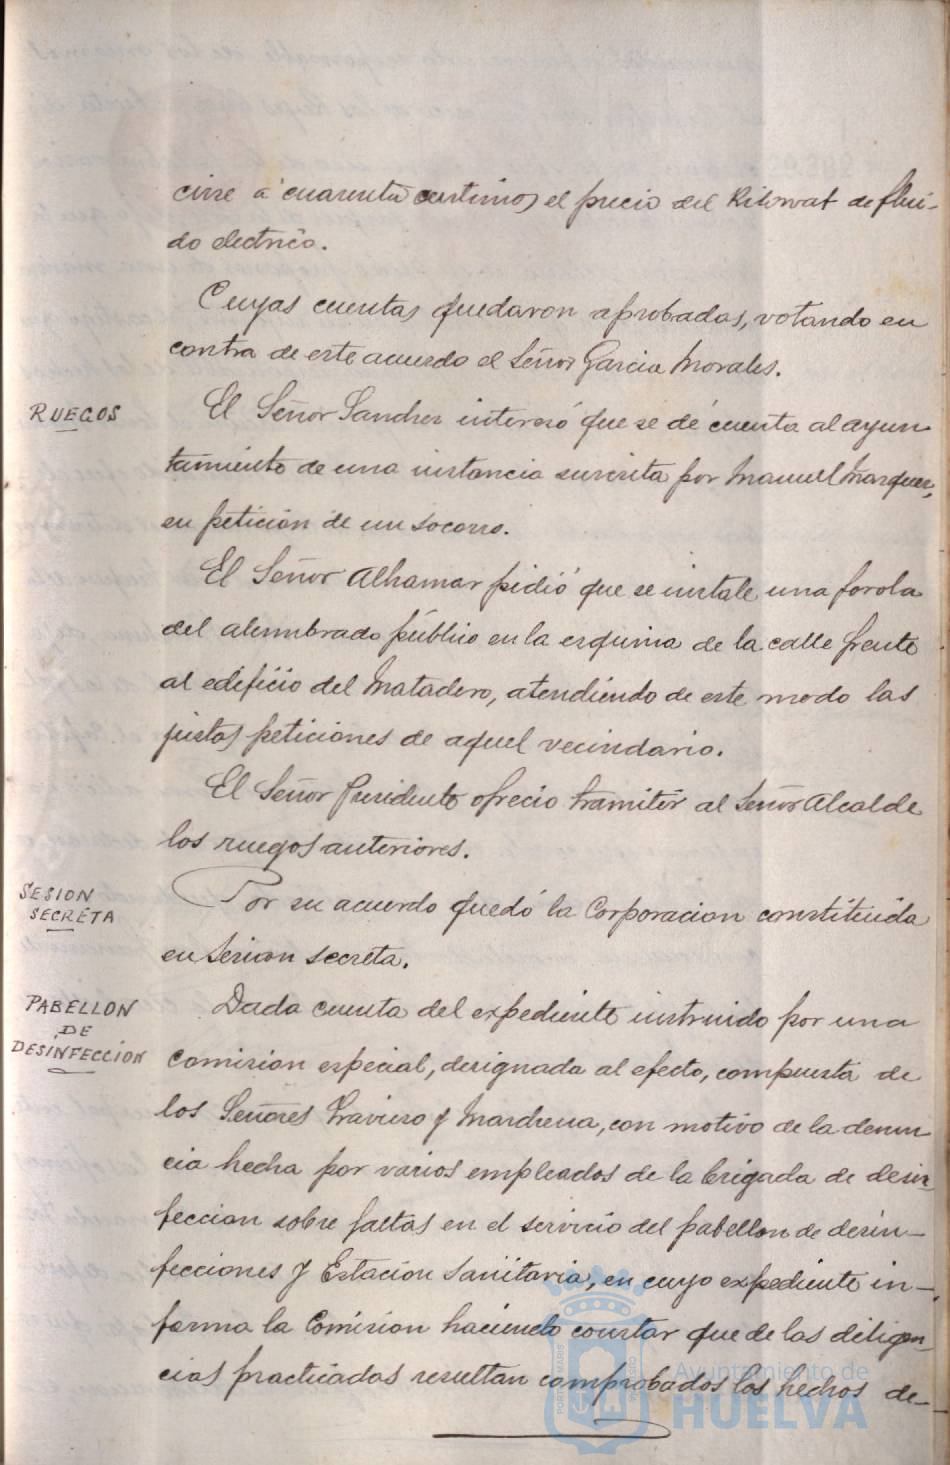 cirse á cuarenta centimos el precio del Kilowat de flui-
do electrico.
Cuyas cuentas quedaron aprobadas, votando en
contra de este acuerdo el Señor Garcia Morales.
RUEGOS
El Señor Sanchez interesó que se dé cuenta al ayun-
tamiento de una instancia suscrita por Manuel Marquez,
en petición de un socorro.
El Señor Alhamar pidió que se instale una farola
del alumbrado público en la esquina de la calle frente
al edificio del Matadero, atendiendo de este modo las
justas peticiones de aquel vecindario.
El Señor Presidente ofreció tramitar al Señor Alcalde
los ruegos anteriores.
SESION
SECRETA
Por su acuerdo quedó la Corporacion constituida
en sesion secreta.
PABELLON
DE
DESINFECCION
Dada cuenta del expediente instruido por una
comision especial, designada al efecto, compuesta de
los Señores Traviero y Marchena, con motivo de la denun
cia hecha por varios empleados de la brigada de desin
feccion sobre faltas en el servicio del pabellon de desin-
fecciones y Estación Sanitaria, en cuyo expediente in-
forma la Comision haciendo constar que de las diligen
cias practicadas resultan comprobados los hechos de-
Ayuntamiento de
HUELVA